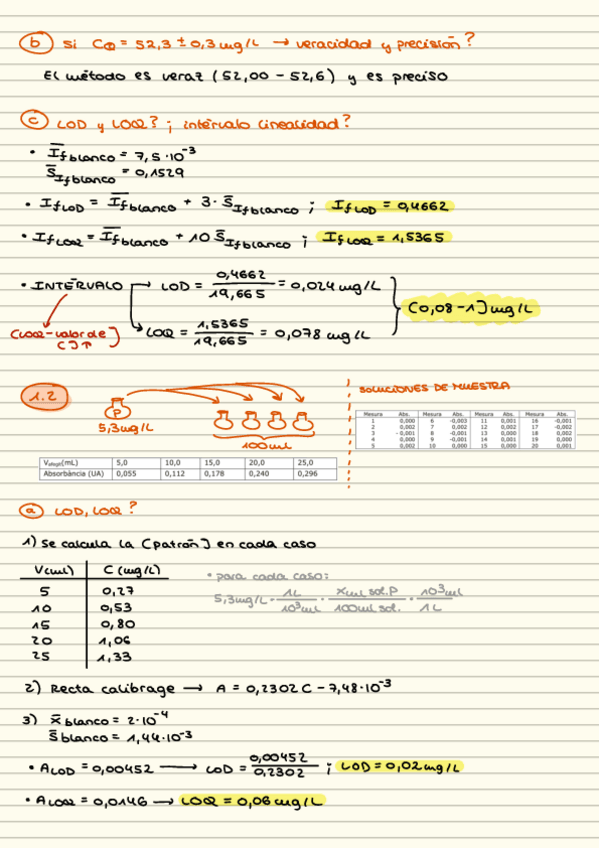 b) si C⊕ = 52,3 ± 0,3 mg/L → veracidad y precisión?
El método es veraz (52,00 - 52,6) y es preciso
c) LOD y LOQ? ; intervalo linealidad?
• I̅f blanco = 7,5·10⁻³
S̅If blanco = 0,1529
• If LOD = I̅f blanco + 3· S̅If blanco ; If LOD = 0,4662
• If LOQ = I̅f blanco + 10 S̅If blanco ; If LOQ = 1,5365
• INTERVALO → LOD = 0,4662 / 19,665 = 0,024 mg/L
[LOQ - valor de C]↑
LOQ = 1,5365 / 19,665 = 0,078 mg/L
[0,08 - 1] mg/L
1.2
P
5,3 mg/L
100 ml
SOLUCIONES DE MUESTRA
Mesura Abs. Mesura Abs. Mesura Abs. Mesura Abs.
1 0,000 6 -0,003 11 0,001 16 -0,001
2 0,002 7 0,002 12 0,002 17 -0,002
3 -0,001 8 -0,001 13 0,000 18 0,002
4 0,000 9 -0,001 14 0,001 19 0,000
5 0,002 10 0,000 15 0,000 20 0,001
Vafegit(mL) 5,0 10,0 15,0 20,0 25,0
Absorbància (UA) 0,055 0,112 0,178 0,240 0,296
a) LOD, LOQ?
1) Se calcula la [patrón] en cada caso
V(ml) C (mg/L)
5 0,27
10 0,53
15 0,80
20 1,06
25 1,33
• para cada caso:
5,3 mg/L · 1L / 10³ml · X ml sol. P / 100 ml sol. · 10³ml / 1L
2) Recta calibrage → A = 0,2302 C - 7,48·10⁻³
3) x̅ blanco = 2·10⁻⁴
S̅ blanco = 1,44·10⁻³
• A LOD = 0,00452 → LOD = 0,00452 / 0,2302 ; LOD = 0,02 mg/L
• A LOQ = 0,0146 → LOQ = 0,06 mg/L